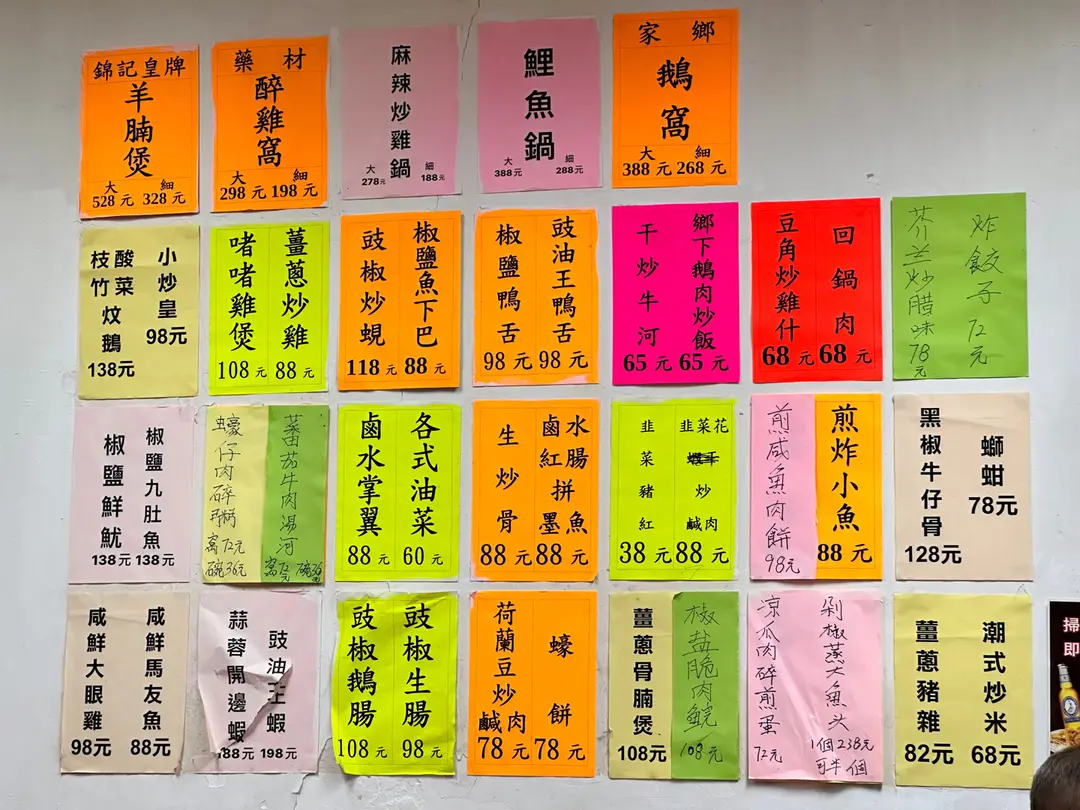 錦記皇牌
羊腩煲
大 細
528元 328元
藥材
醉雞窩
大 細
298元 198元
麻辣炒雞鍋
大 細
278元 188元
鯉魚鍋
大 細
388元 288元
家鄉
鵝窩
大 細
388元 268元
小炒皇
98元
酸菜
枝竹
炆鵝
138元
薑蔥炒雞
88元
啫啫雞煲
108元
椒鹽魚下巴
88元
豉椒炒蜆
118元
豉油王鴨舌
98元
椒鹽鴨舌
98元
鄉下鵝肉炒飯
65元
干炒牛河
65元
回鍋肉
68元
豆角炒雞什
68元
炸餃子
72元
芥兰炒腊味
78元
椒鹽九肚魚
138元
椒鹽鮮魷
138元
蕃茄牛肉湯河
窩72元 碗36元
蠔仔肉碎粥
窩72元
碗36元
各式油菜
60元
鹵水掌翼
88元
鹵水
紅腸
拼
墨魚
88元
生炒骨
88元
韭菜花
炒
鹹肉
88元
韭菜豬紅
38元
煎炸小魚
88元
煎咸魚肉餅
98元
螄蚶
78元
黑椒牛仔骨
128元
咸鮮馬友魚
88元
咸鮮大眼雞
98元
豉油王蝦
198元
蒜蓉開邊蝦
188元
豉椒生腸
98元
豉椒鵝腸
108元
蠔餅
78元
荷蘭豆炒鹹肉
78元
椒盐脆肉鯇
108元
薑蔥骨腩煲
108元
剁椒蒸大魚头
1個238元
可半個
凉瓜肉碎煎蛋
72元
潮式炒米
68元
薑蔥豬雜
82元
掃
即